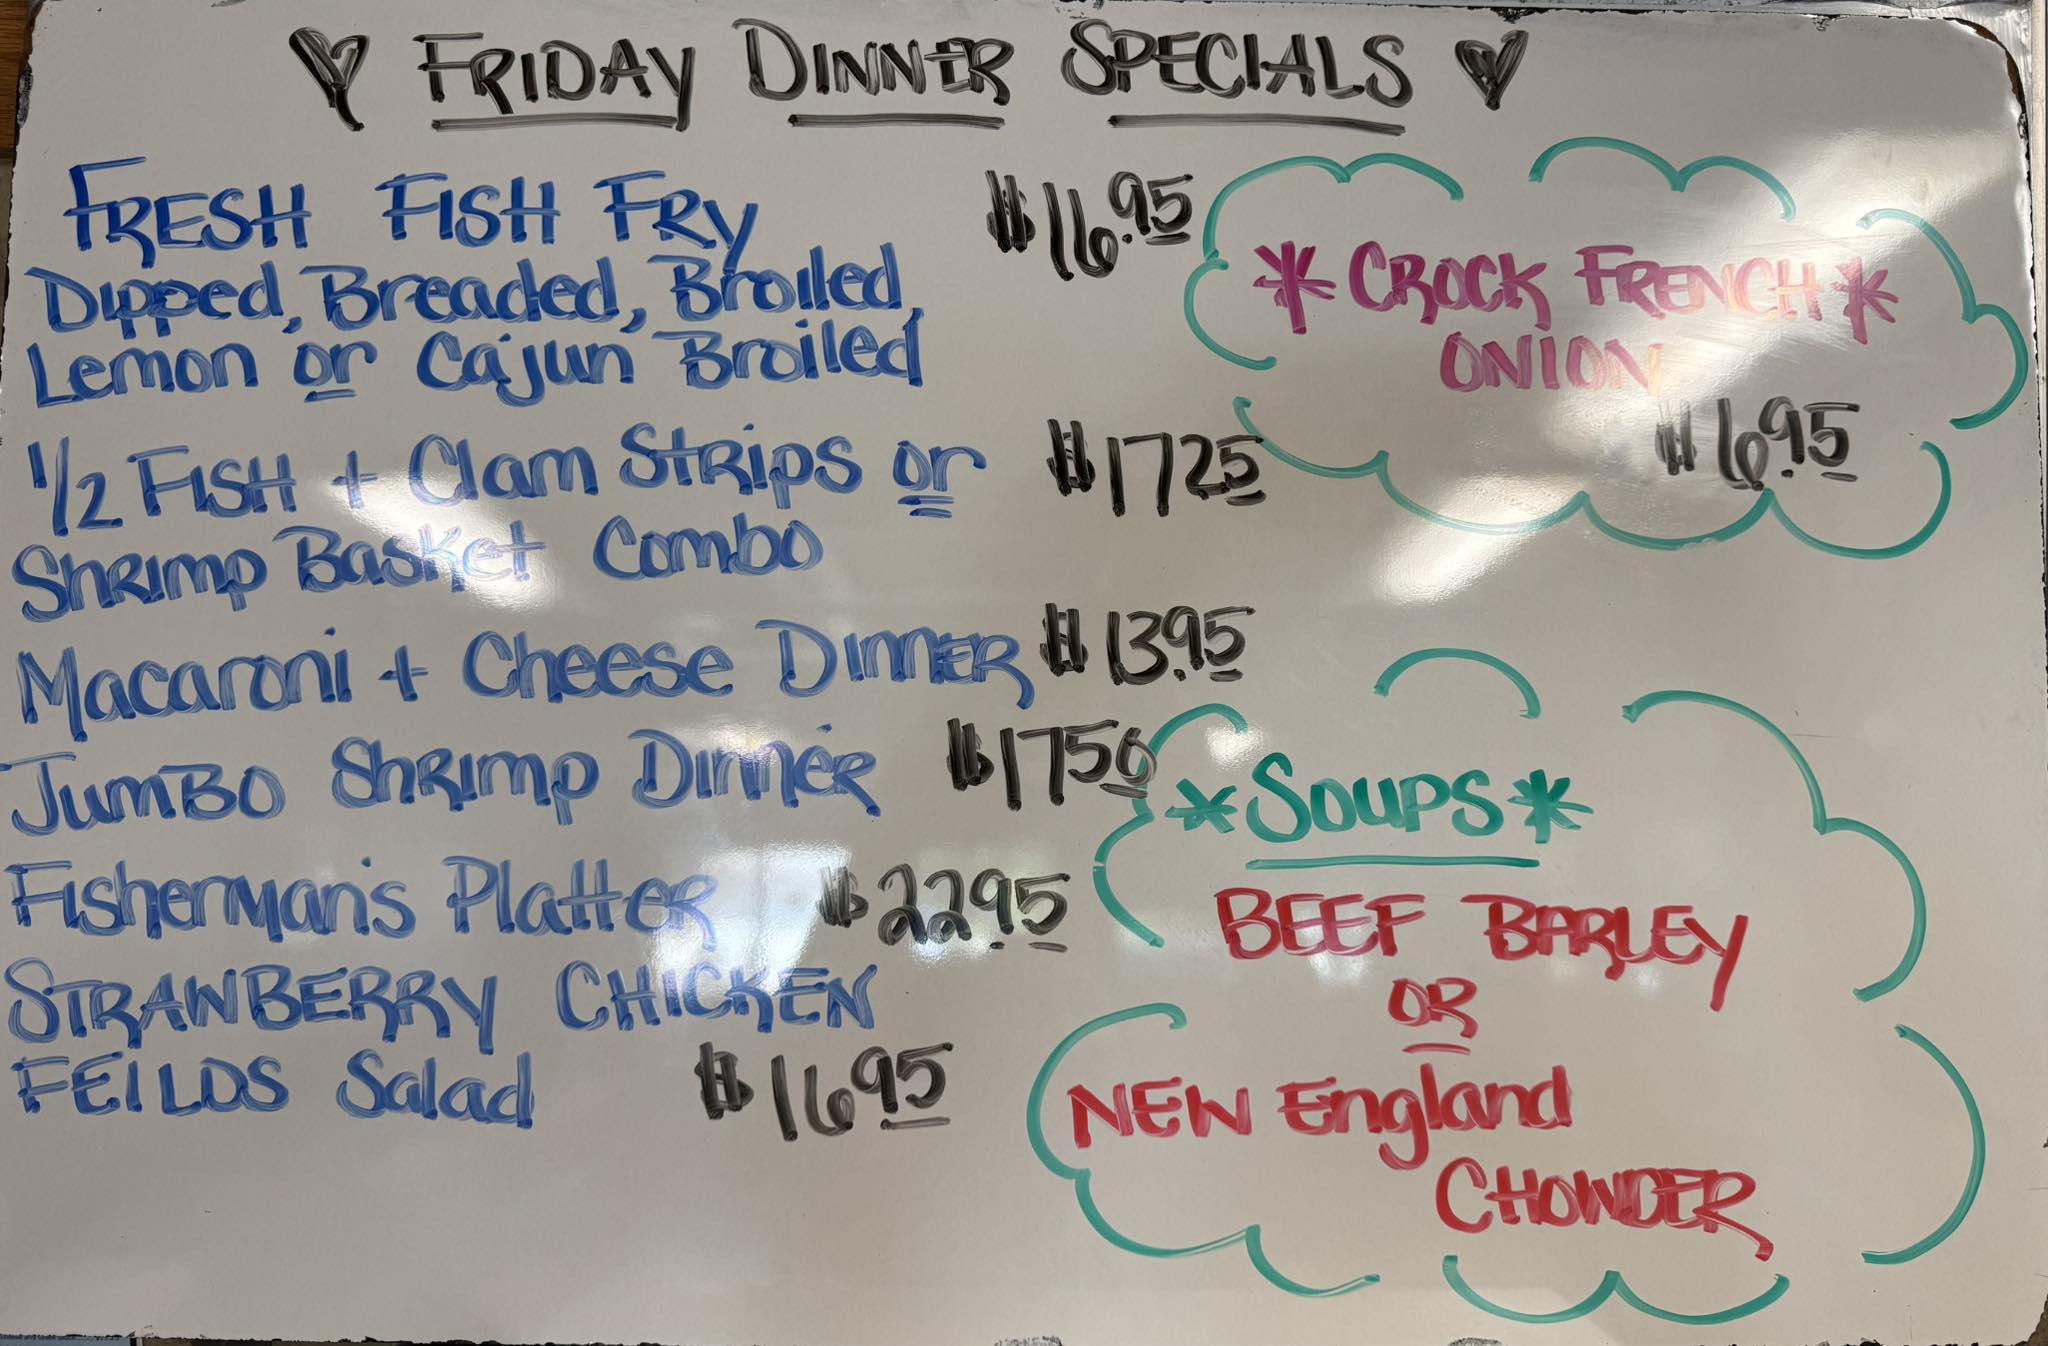 ♥ FRIDAY DINNER SPECIALS ♥
FRESH FISH FRY $16.95
Dipped, Breaded, Broiled,
Lemon or Cajun Broiled
1/2 FISH + Clam Strips or $17.25
Shrimp Basket Combo
Macaroni + Cheese DINNER $13.95
Jumbo Shrimp Dinner $17.50
Fisherman's Platter $22.95
STRAWBERRY CHICKEN
FEILDS Salad $16.95
*CROCK FRENCH*
ONION
$6.95
*SOUPS*
BEEF BARLEY
OR
NEW England
CHOWDER